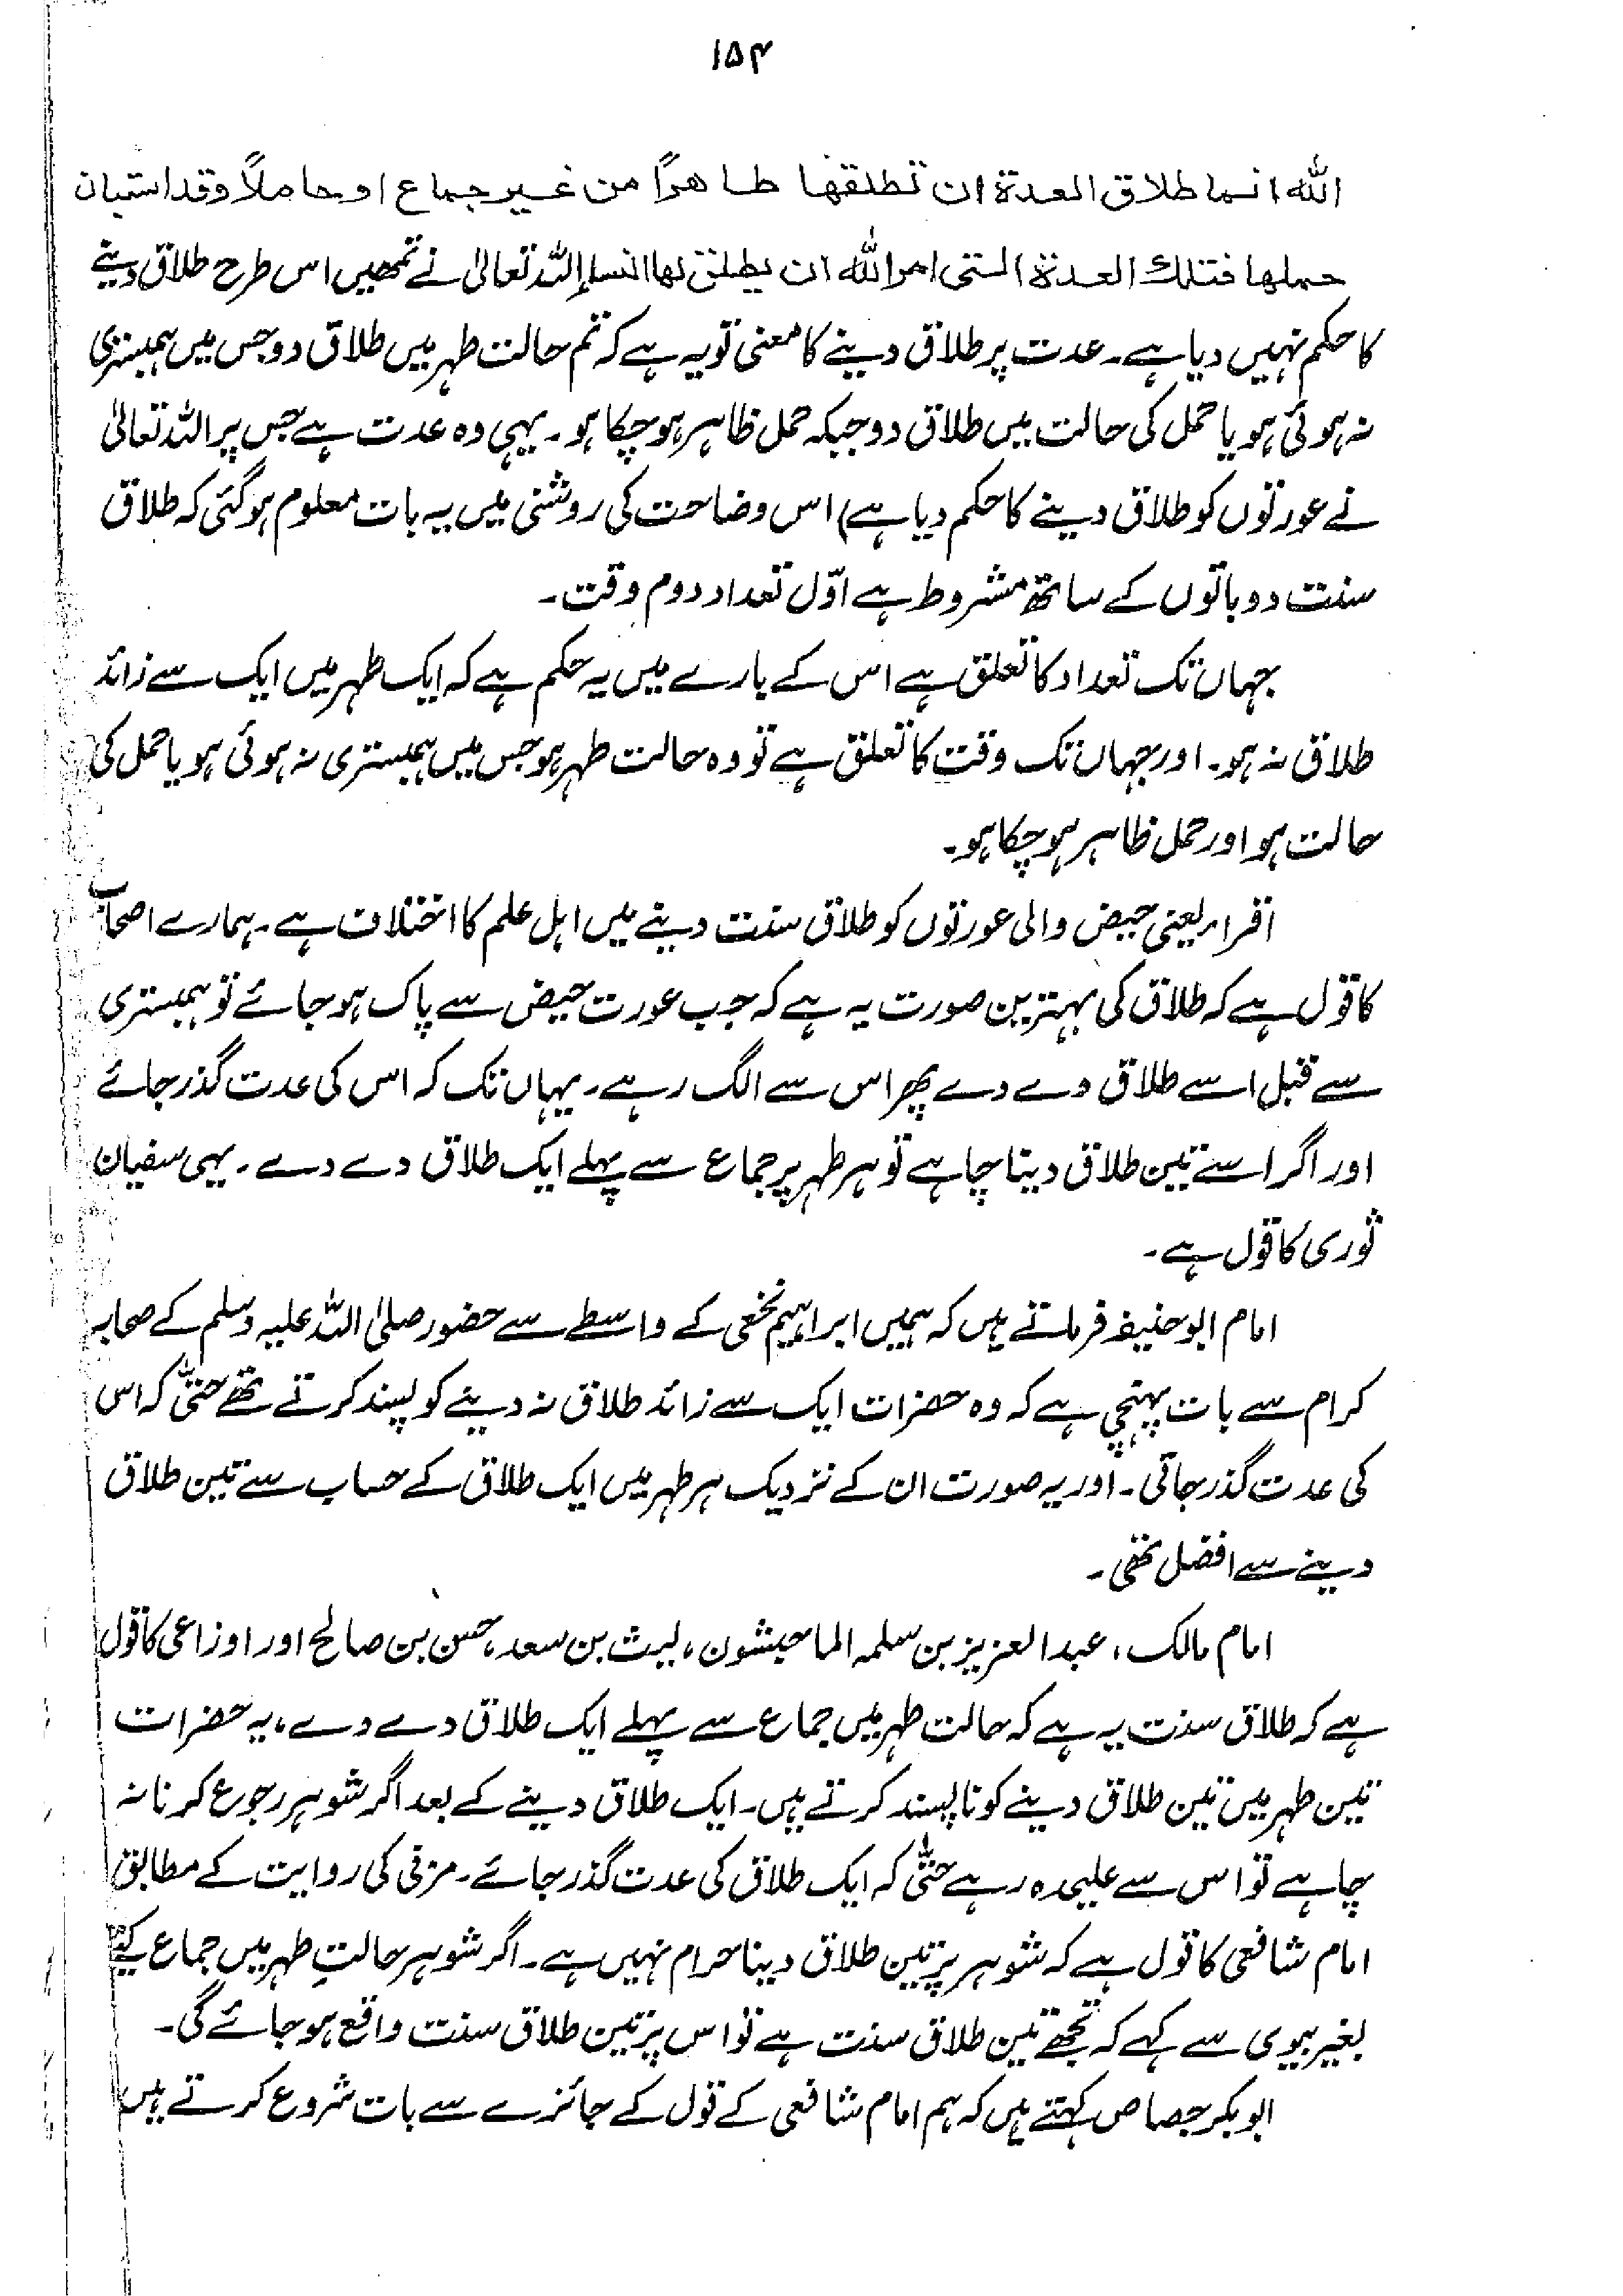 ۱۵۴
اللہ انما طلاق العدة ان تطلقها طاهراً من غیر جماع او حاملاً وقد استبان
حملها فتلك العدة التی امر اللہ ان یطلق لها النساء اللہ تعالیٰ نے تمھیں اس طرح طلاق دینے
کا حکم نہیں دیا ہے۔ عدت پر طلاق دینے کا معنی تو یہ ہے کہ تم حالت طہر میں طلاق دو جس میں ہمبستری
نہ ہوئی ہو یا حمل کی حالت میں طلاق دو جبکہ حمل ظاہر ہو چکا ہو۔ یہی وہ عدت ہے جس پر اللہ تعالیٰ
نے عورتوں کو طلاق دینے کا حکم دیا ہے) اس وضاحت کی روشنی میں یہ بات معلوم ہو گئی کہ طلاق
سنت دو باتوں کے ساتھ مشروط ہے اوّل تعداد دوم وقت۔
جہاں تک تعداد کا تعلق ہے اس کے بارے میں یہ حکم ہے کہ ایک طہر میں ایک سے زائد
طلاق نہ ہو۔ اور جہاں تک وقت کا تعلق ہے تو وہ حالت طہر ہو جس میں ہمبستری نہ ہوئی ہو یا حمل کی
حالت ہو اور حمل ظاہر ہو چکا ہو۔
اقراء یعنی حیض والی عورتوں کو طلاق سنت دینے میں اہل علم کا اختلاف ہے۔ ہمارے اصحاب
کا قول ہے کہ طلاق کی بہترین صورت یہ ہے کہ جب عورت حیض سے پاک ہو جائے تو ہمبستری
سے قبل اسے طلاق دے دے پھر اس سے الگ رہے۔ یہاں تک کہ اس کی عدت گذر جائے
اور اگر اسے تین طلاق دینا چاہے تو ہر طہر پر جماع سے پہلے ایک طلاق دے دے۔ یہی سفیان
ثوری کا قول ہے۔
امام ابو حنیفہ فرماتے ہیں کہ ہمیں ابراہیم نخعی کے واسطے سے حضور صلی اللہ علیہ وسلم کے صحابہ
کرام سے بات پہنچی ہے کہ وہ حضرات ایک سے زائد طلاق نہ دینے کو پسند کرتے تھے حتیّٰ کہ اس
کی عدت گذر جاتی۔ اور یہ صورت ان کے نزدیک ہر طہر میں ایک طلاق کے حساب سے تین طلاق
دینے سے افضل تھی۔
امام مالک، عبدالعزیز بن سلمہ الماجشون، لیث بن سعد، حسن بن صالح اور اوزاعی کا قول
ہے کہ طلاق سنت یہ ہے کہ حالت طہر میں جماع سے پہلے ایک طلاق دے دے، یہ حضرات
تین طہر میں تین طلاق دینے کو ناپسند کرتے ہیں۔ ایک طلاق دینے کے بعد اگر شوہر رجوع کرنا نہ
چاہے تو اس سے علیحدہ رہے حتیّٰ کہ ایک طلاق کی عدت گذر جائے۔ مزنی کی روایت کے مطابق
امام شافعی کا قول ہے کہ شوہر پر تین طلاق دینا حرام نہیں ہے۔ اگر شوہر حالتِ طہر میں جماع کیے
بغیر بیوی سے کہے کہ تجھے تین طلاق سنت ہے تو اس پر تین طلاق سنت واقع ہو جائے گی۔
ابو بکر جصاص کہتے ہیں کہ ہم امام شافعی کے قول کے جائزے سے بات شروع کرتے ہیں